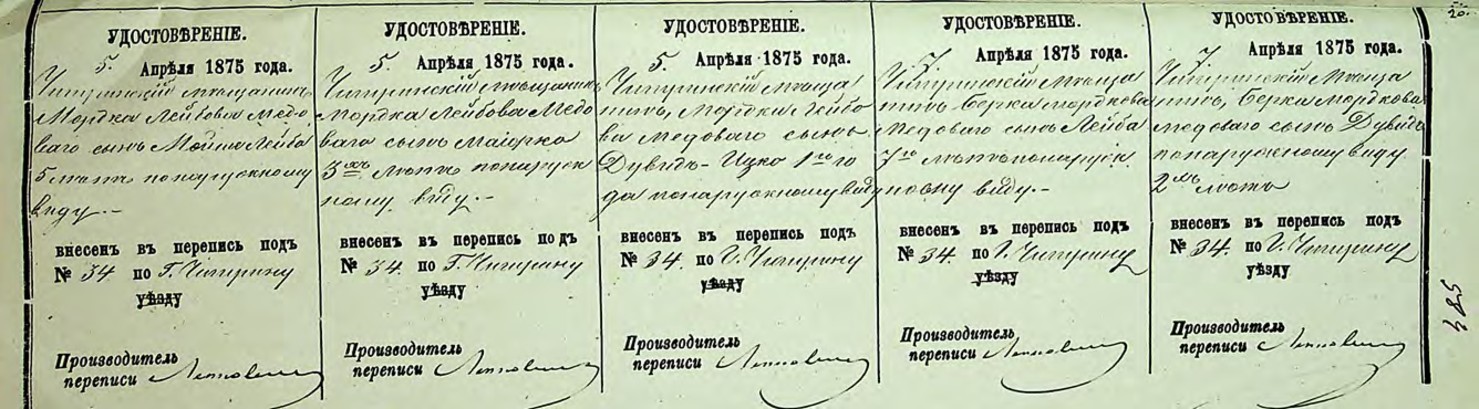 УДОСТОВѢРЕНІЕ.
5. Апрѣля 1875 года.
Чигиринскій мѣщанинъ
Мордка Лейбова Медо
ваго сынъ Мойше Лейба
5 лѣтъ понаружному
виду.-
внесенъ въ перепись подъ
№ 34. по Г. Чигирину
уѣзду
Производитель
переписи
УДОСТОВѢРЕНІЕ.
5. Апрѣля 1875 года.
Чигиринскій мѣщанинъ
Мордка Лейбова Медо
ваго сынъ Маіорко
3хъ лѣтъ понаруж
ному виду.-
внесенъ въ перепись подъ
№ 34. по Г. Чигирину
уѣзду
Производитель
переписи
УДОСТОВѢРЕНІЕ.
5. Апрѣля 1875 года.
Чигиринскій мѣща
нинъ, Мордки Лейбо
ва Медоваго сынъ
Дувидъ-Ицко 1го го
да понаружному виду
внесенъ въ перепись подъ
№ 34. по Г. Чигирину
уѣзду
Производитель
переписи
УДОСТОВѢРЕНІЕ.
7. Апрѣля 1875 года.
Чигиринскій мѣща
нинъ Берка Мордкова
Медоваго сынъ Лейба
7 лѣтъ понаруж
ному виду.-
внесенъ въ перепись подъ
№ 34. по Г. Чигирину
уѣзду
Производитель
переписи
УДОСТОВѢРЕНІЕ.
7 Апрѣля 1875 года.
Чигиринскій мѣща
нинъ, Берка Мордкова
Медоваго сынъ Дувидъ
понаружному виду
2хъ лѣтъ
внесенъ въ перепись подъ
№ 34. по Г. Чигирину
уѣзду
Производитель
переписи
20.